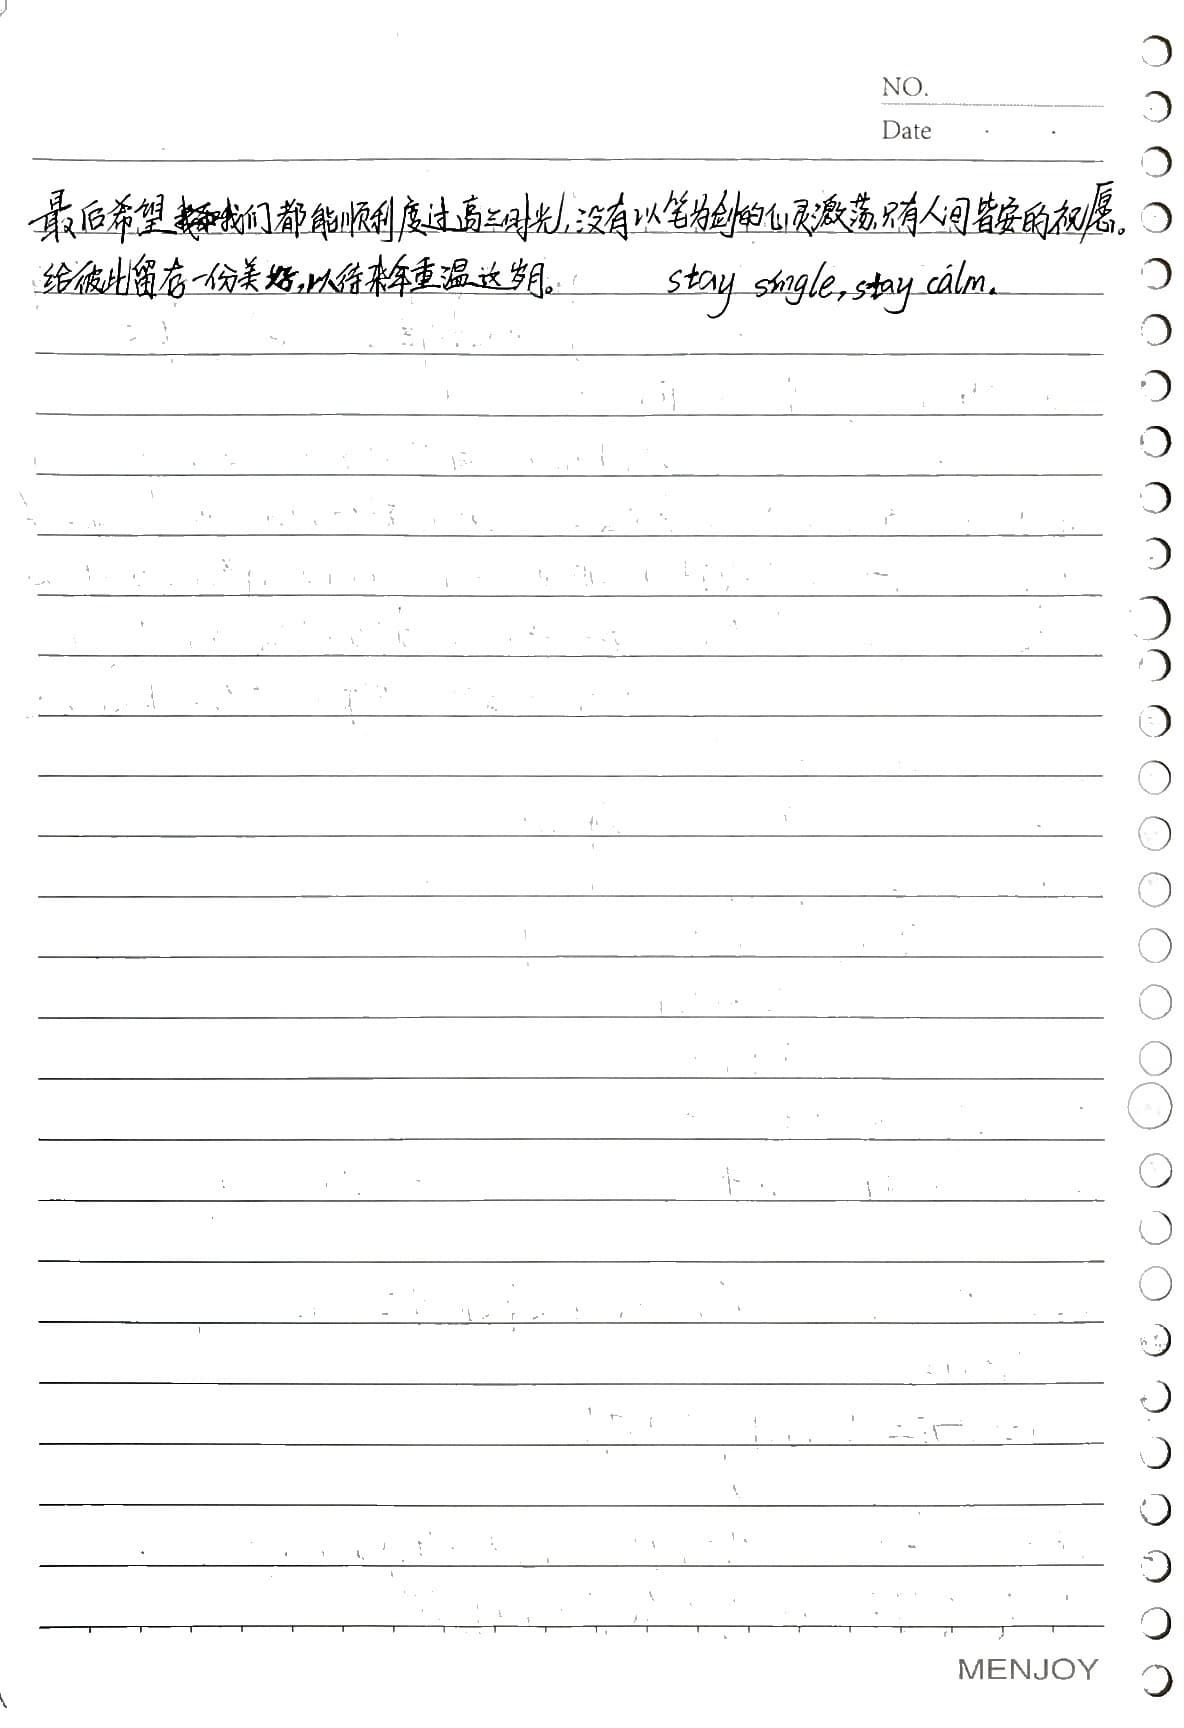 NO.
Date
最后希望我们都能顺利度过高三时光,没有以笔为剑的心灵激荡,只有人间皆安的祝愿。
给彼此留存一份美好,以待来年重温这岁月。 stay single, stay calm.
MENJOY